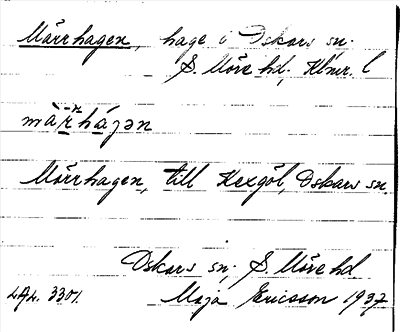 Mörrhagen, hage i Oskars sn.
S. Möre hd, Kbmr. l
mä̀r̄hágən
Mörrhagen, till Kexgöl, Oskars sn.
Oskars sn, S. Möre hd
LAL. 3301. Maja Ericsson 1937